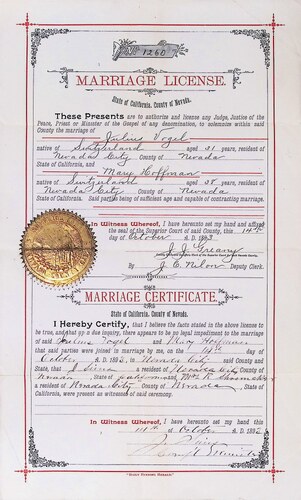 No. 1260
MARRIAGE LICENSE.
State of California, County of Nevada.
These Presents are to authorize and license any Judge, Justice of the
Peace, Priest or Minister of the Gospel of any denomination, to solemnize within said
County the marriage of
Julius Vogel
native of Switzerland aged 31 years, resident of
Nevada City County of Nevada
State of California, and
Mary Hoffman
native of Switzerland aged 38 years, resident of
Nevada City County of Nevada
State of California. Said parties being of sufficient age and capable of contracting marriage.
In Witness Whereof, I have hereunto set my hand and affixed
the seal of the Superior Court of said County, this 14th
day of October A. D. 1893
J. J. Greany
By Deputy Clerk.
MARRIAGE CERTIFICATE.
State of California, County of Nevada.
I Hereby Certify, that I believe the facts stated in the above license to
be true, and that upon due inquiry, there appears to be no legal impediment to the marriage
of said Julius Vogel and Mary Hoffman
that said parties were joined in marriage by me, on the 14th day
October A. D. 1893, in Nevada City said County
and State, that a resident of Nevada City County of
Nevada State of California and
a resident of Nevada City County of Nevada State of
California, were present as witnesses of said ceremony.
In Witness Whereof, I have hereunto set my hand this
14th day of October A. D. 1893